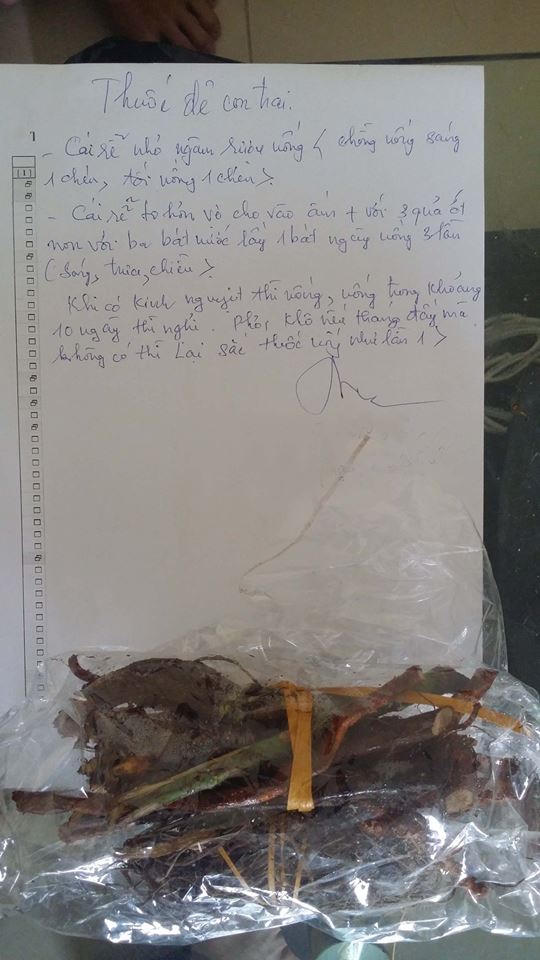 Thuốc đẻ con trai.
- Cái rễ nhỏ ngâm rượu uống < chồng uống sáng
1 chén, tối uống 1 chén >.
- Cái rễ to hơn vò cho vào ấm + với 3 quả ớt
non với ba bát nước lấy 1 bát ngày uống 3 lần
( Sáng, trưa, chiều >.
Khi có kinh nguyệt thì uống, uống trong khoảng
10 ngày thì nghỉ. Phơi khô nếu tháng đấy mà
không có thì lại sắc thuốc uống như lần 1 >
1
(1)